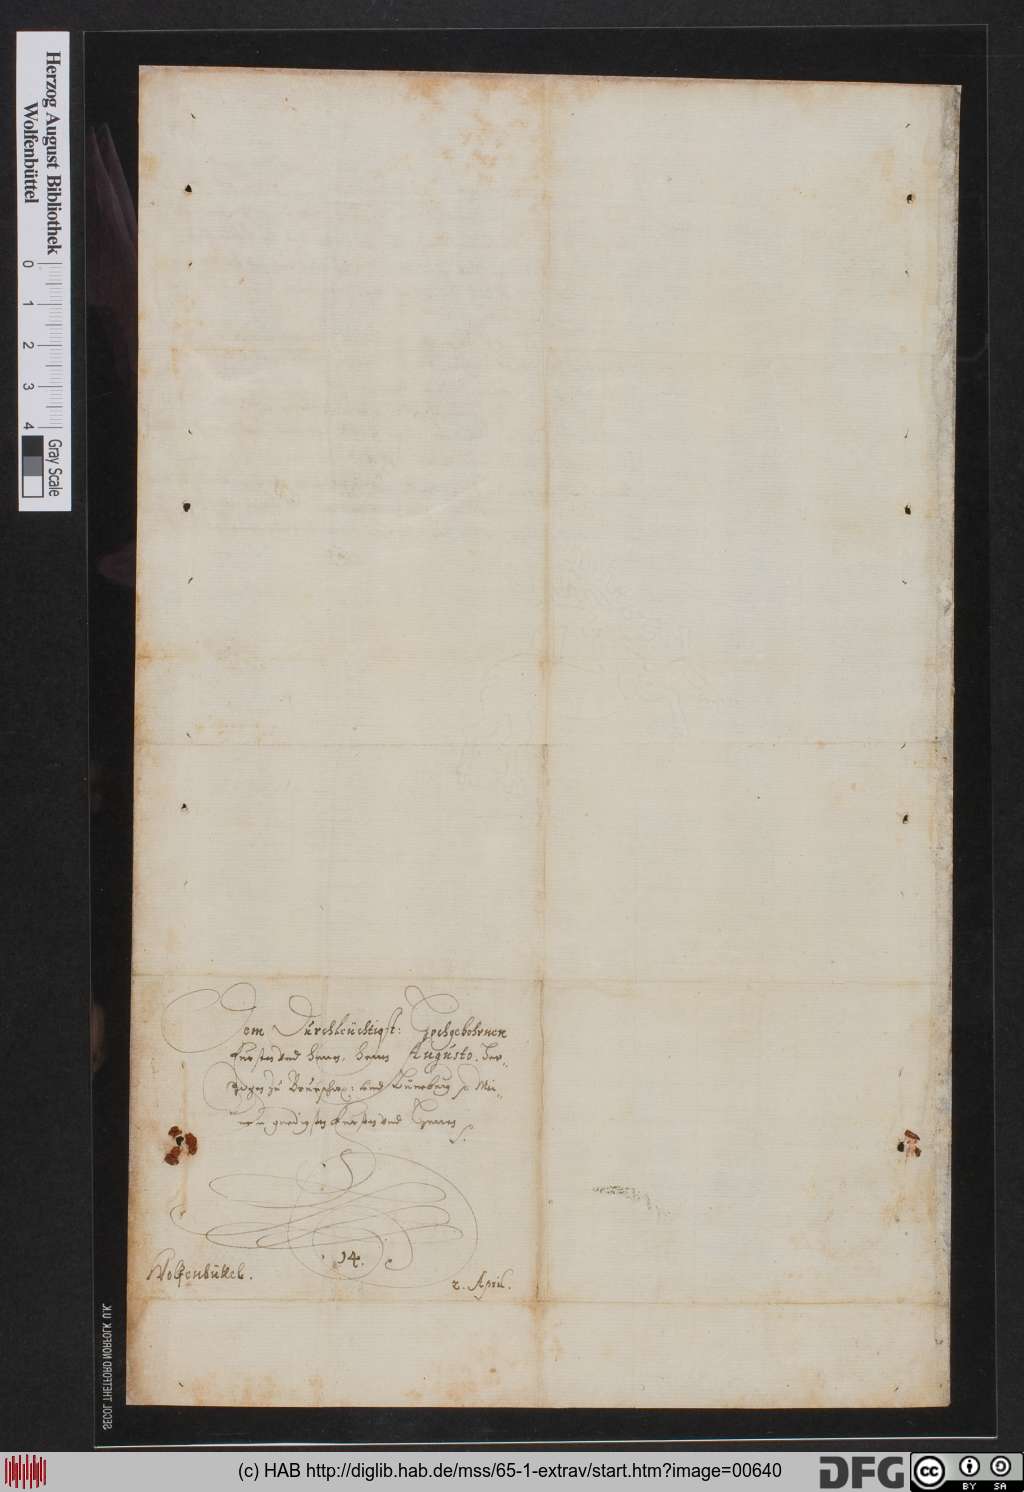 Herzog August Bibliothek
Wolfenbüttel
0 1 2 3 4
Gray Scale
Dem Durchleüchtigst: Hochgebohrnen
Fursten vnd Herrn, Herrn Augusto, Her-
zogen zu Braunschw: vnd Lüneburg p. Mei-
nem gnedigsten Fursten vnd Herrn
14.
Wolfenbüttel.
2. April.
SECOL THETFORD NORFOLK U.K.
(c) HAB http://diglib.hab.de/mss/65-1-extrav/start.htm?image=00640
DFG
cc
BY SA